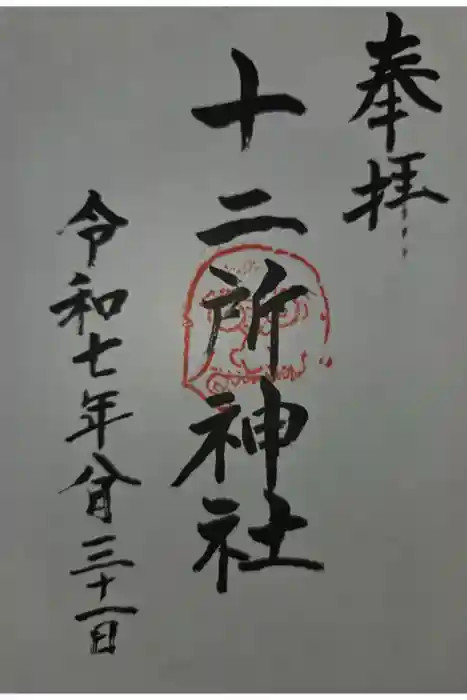 奉拝
十二所神社
令和七年八月三十一日